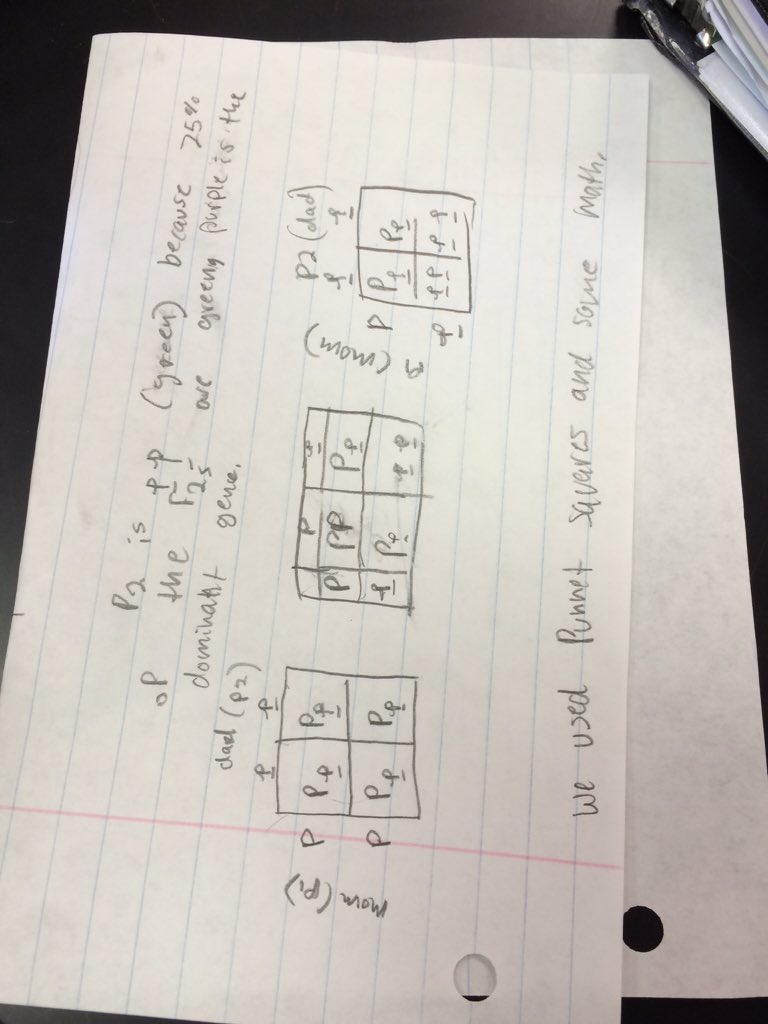 P2 is pp (green) because 25%
of the F2s are green, purple is the
dominant gene.
dad (P2)
p p
P Pp Pp
P Pp Pp
mom (P1)
P p
P PP Pp
p Pp pp
P2 (dad)
p p
P Pp Pp
(mom)
p pp pp
we used Punnet squares and some math.